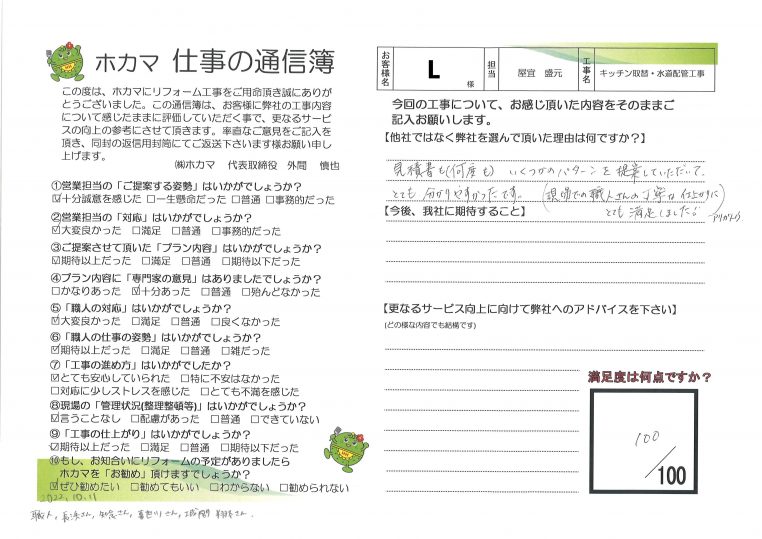 ホカマ 仕事の通信簿
この度は、ホカマにリフォーム工事をご用命頂き誠にありが
とうございました。この通信簿は、お客様に弊社の工事内容
について感じたままに評価していただく事で、更なるサービ
スの向上の参考にさせて頂きます。率直なご意見をご記入を
頂き、同封の返信用封筒にてご返送下さいます様お願い申し
上げます。
㈱ホカマ 代表取締役 外間 慎也
①営業担当の「ご提案する姿勢」はいかがでしょうか?
☑十分誠意を感じた □一生懸命だった □普通 □事務的だった
②営業担当の「対応」はいかがでしょうか?
☑大変良かった □満足 □普通 □事務的だった
③ご提案させて頂いた「プラン内容」はいかがでしょうか?
☑期待以上だった □満足 □普通 □期待以下だった
④プラン内容に「専門家の意見」はありましたでしょうか?
□かなりあった ☑十分あった □普通 □殆んどなかった
⑤「職人の対応」はいかがでしょうか?
☑大変良かった □満足 □普通 □良くなかった
⑥「職人の仕事の姿勢」はいかがでしょうか?
☑期待以上だった □満足 □普通 □雑だった
⑦「工事の進め方」はいかがでしたか?
☑とても安心していられた □特に不安はなかった
□対応に少しストレスを感じた □とても不満を感じた
⑧現場の「管理状況(整理整頓等)」はいかがでしょうか?
☑言うことなし □配慮があった □普通 □できていない
⑨「工事の仕上がり」はいかがでしょうか?
☑期待以上だった □満足 □普通 □期待以下だった
⑩もし、お知合いにリフォームの予定がありましたら
ホカマを「お勧め」頂けますでしょうか?
☑ぜひ勧めたい □勧めてもいい □わからない □勧められない
2022.10.11
職人、長浜さん、知念さん、喜世川さん、
お客様名 L 様 担当 屋宜 盛元 工事名 キッチン取替・水道配管工事
今回の工事について、お感じ頂いた内容をそのままご
記入お願いします。
【他社ではなく弊社を選んで頂いた理由は何ですか?】
見積書も(何度も) いくつかのパターンを提案していただいて、
とても分かりやすかったです。(現場での職人さんの丁寧な仕上がりに
とても満足しました。
【今後、我社に期待すること】
【更なるサービス向上に向けて弊社へのアドバイスを下さい】
(どの様な内容でも結構です)
満足度は何点ですか?
100
/100